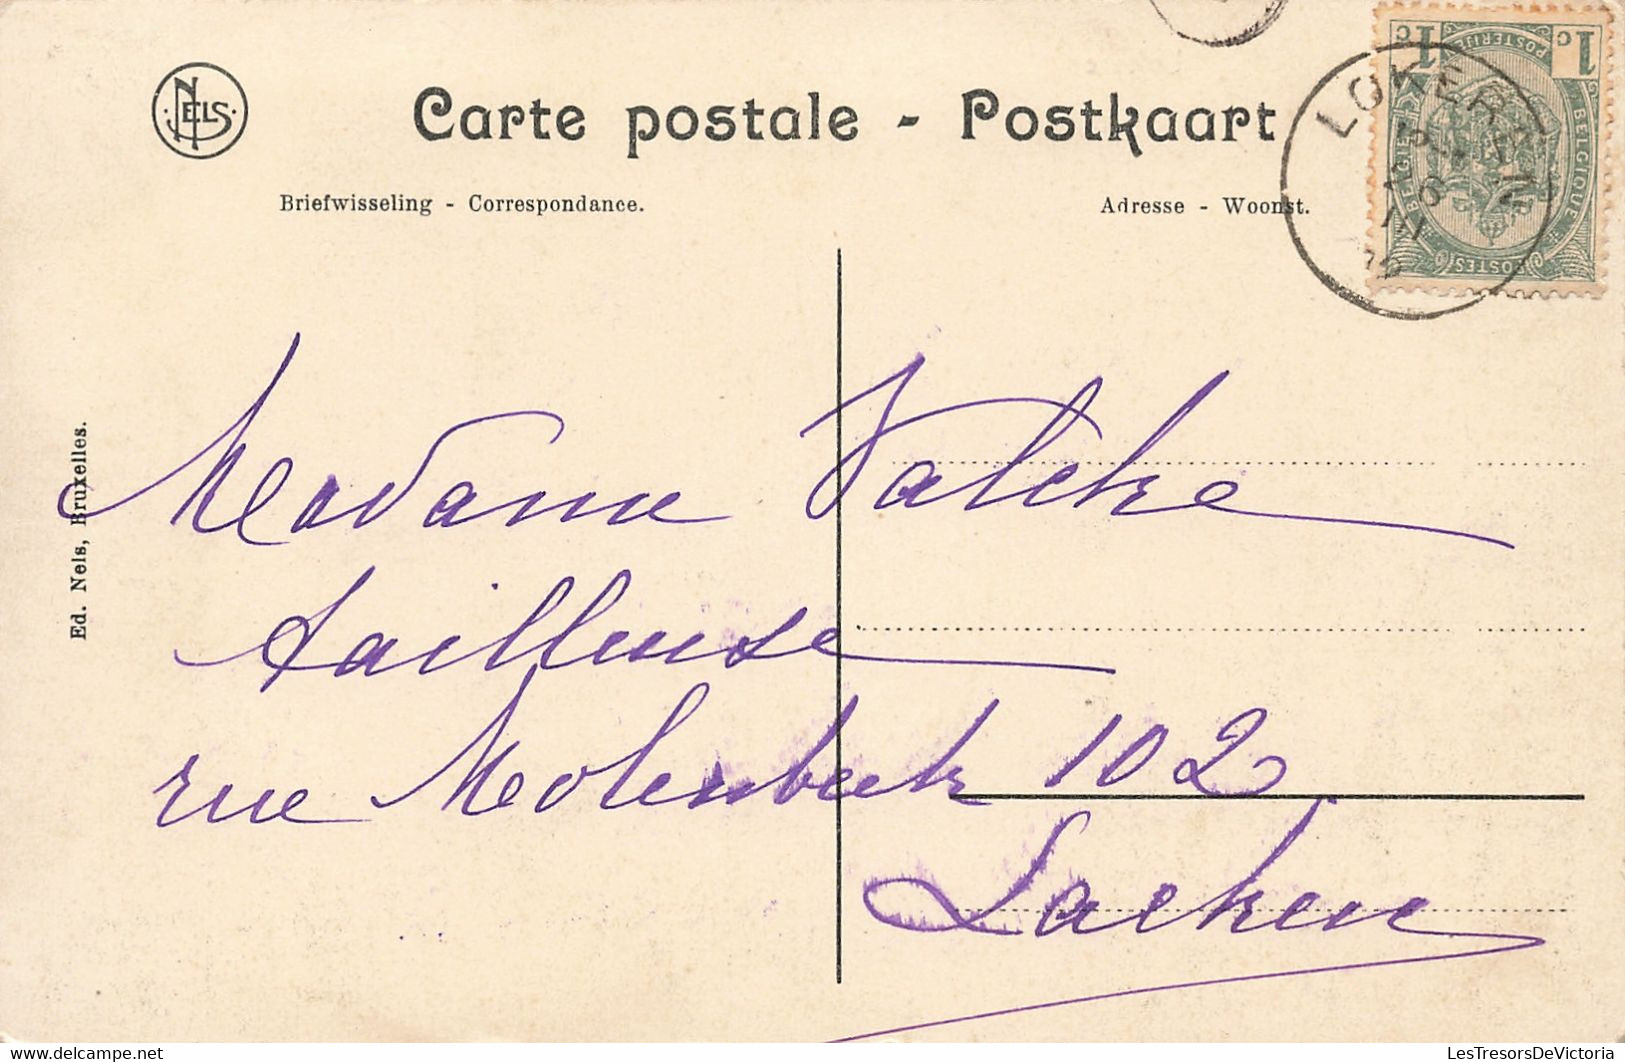 NELS
Carte postale - Postkaart
Briefwisseling - Correspondance.
Adresse - Woonst.
1c 1c
POSTERIJEN
BELGIË BELGIQUE
POSTES
LOKEREN
Ed. Nels, Bruxelles.
Madame Valcke
tailleuse
rue Molenbeek 102
Laeken
LesTresorsDeVictoria
www.delcampe.net